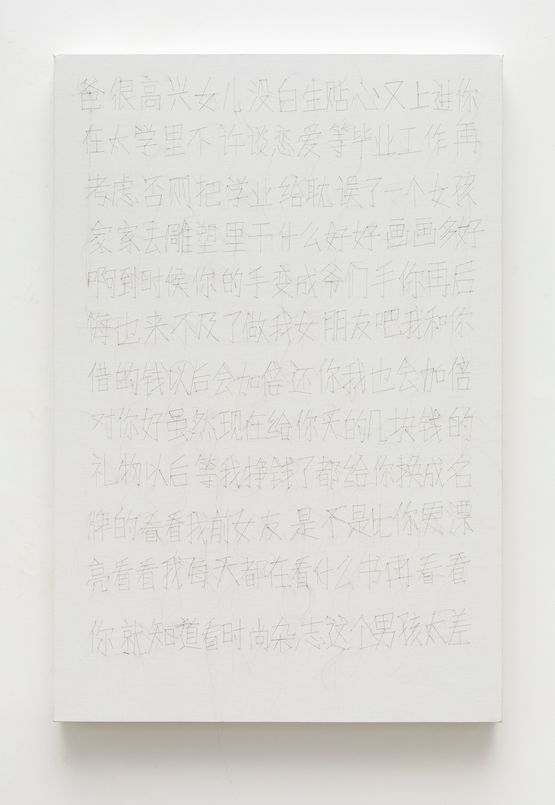 爸很高兴女儿没白生贴心又上进你
在大学里不许谈恋爱等毕业工作再
考虑否则把学业给耽误了一个女孩
家家去雕塑里干什么好好画画多好
啊到时候你的手变成爷们手你再后
悔也来不及了做我女朋友吧我和你
借的钱以后会加倍还你我也会加倍
对你好虽然现在给你买的几块钱的
礼物以后等我挣钱了都给你换成名
牌的看看我前女友是不是比你更漂
亮看看我每天都在看什么书再看看
你就知道看时尚杂志这个男孩太差